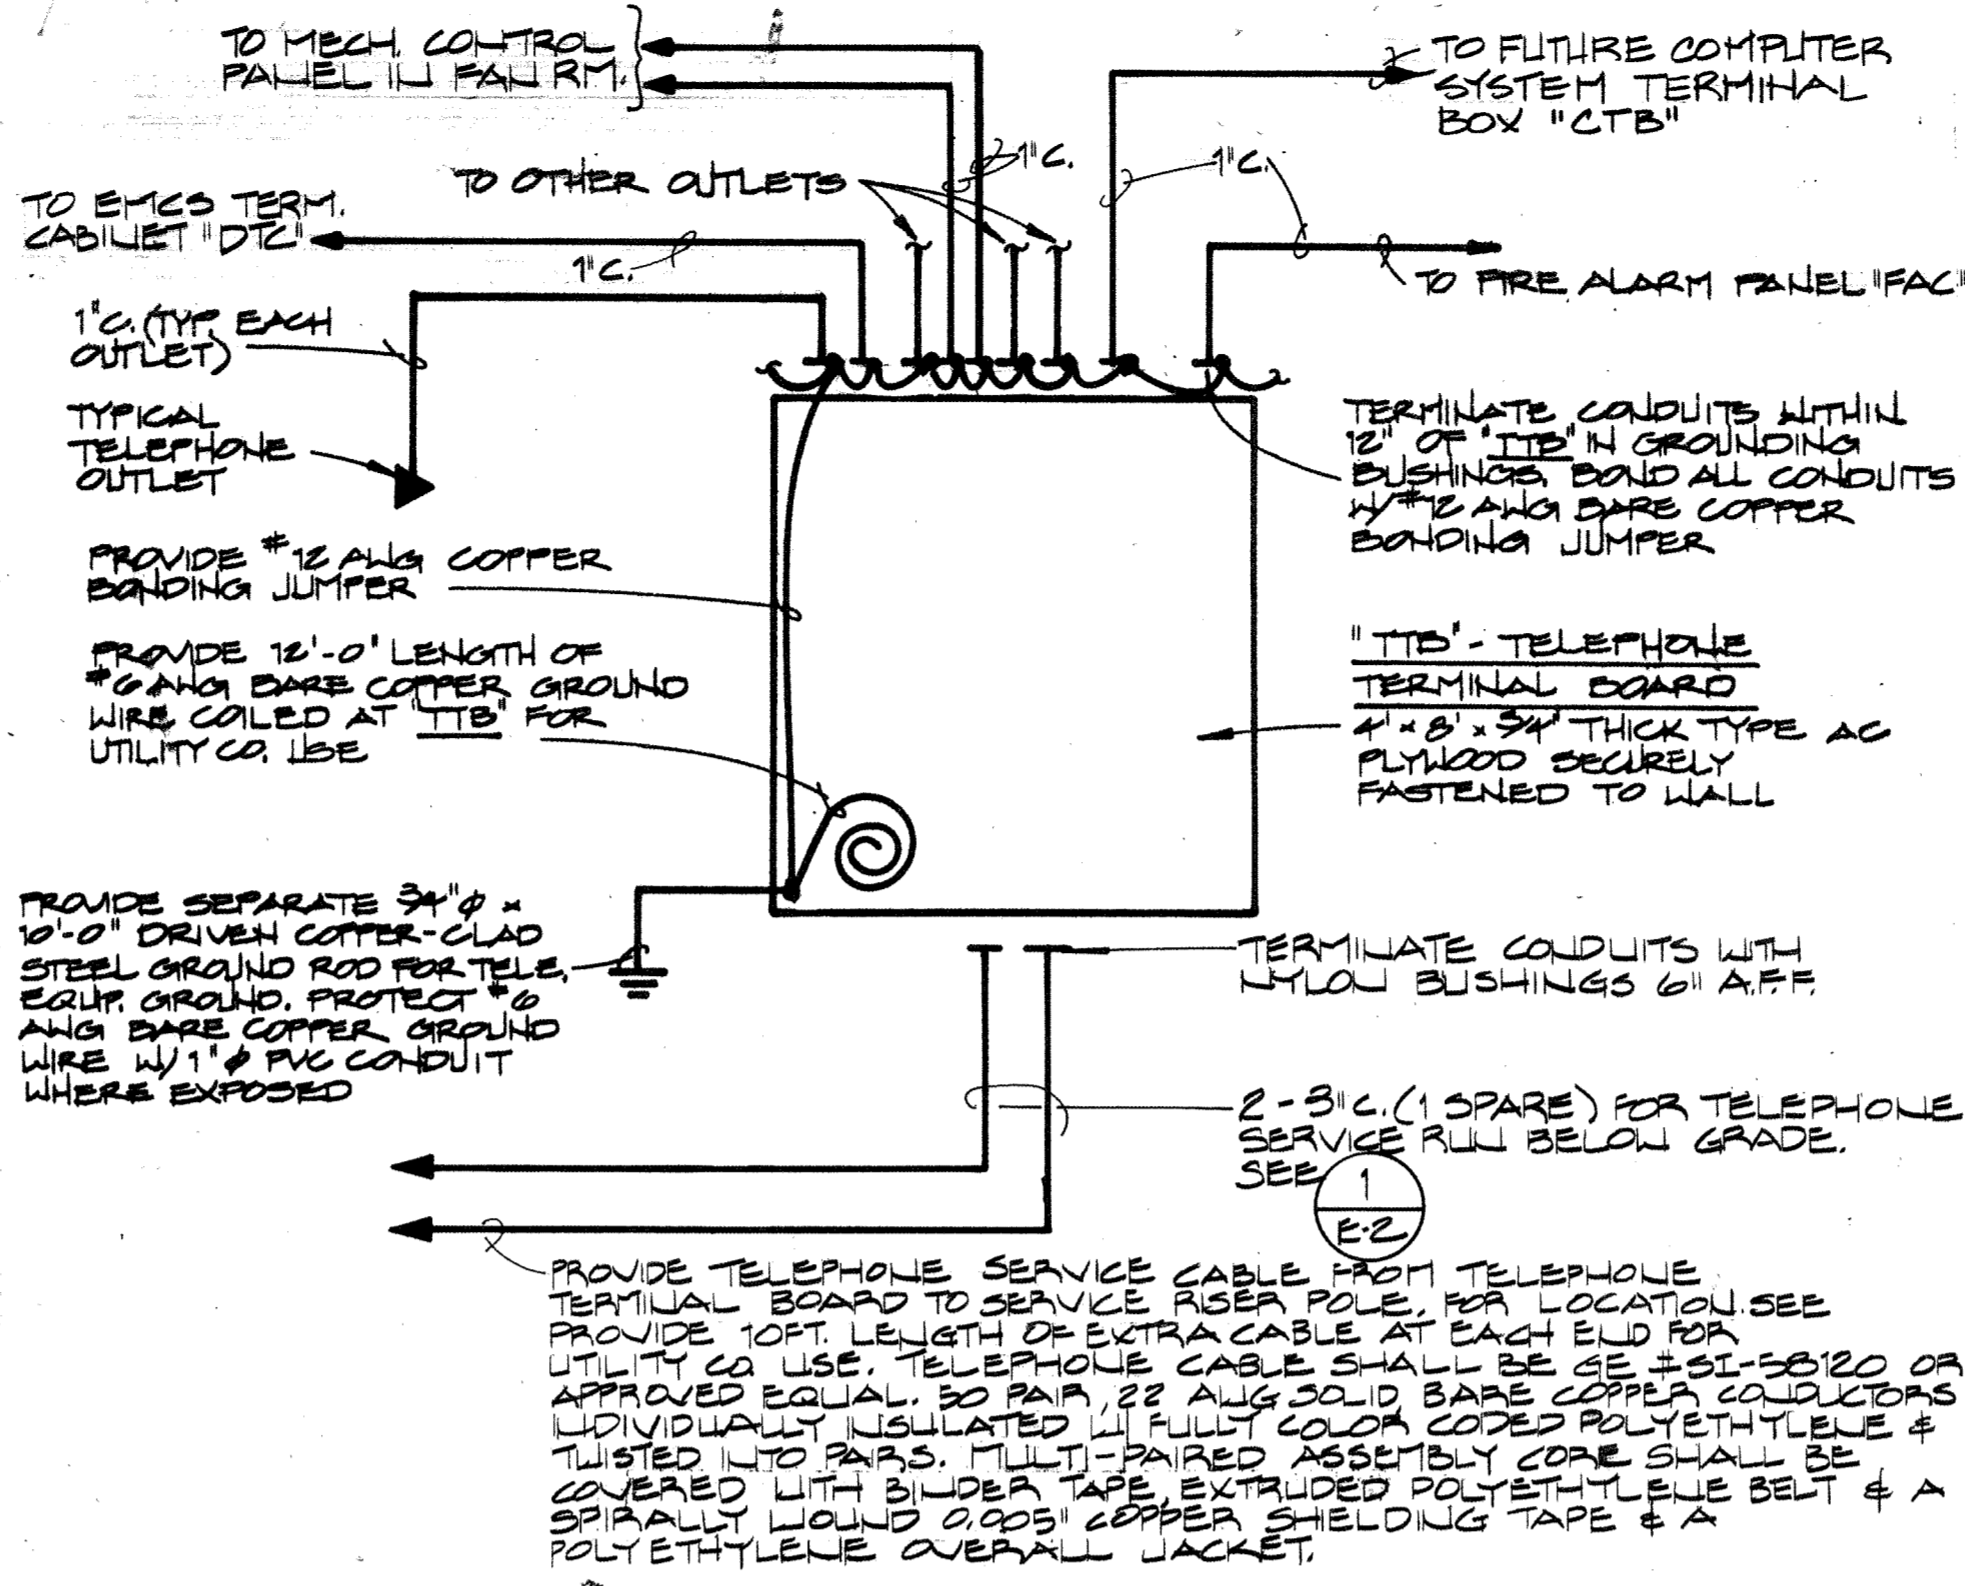 TO MECH. CONTROL
PANEL IN FAN RM.
TO FUTURE COMPUTER
SYSTEM TERMINAL
BOX "CTB"
1"C.
1"C.
TO OTHER OUTLETS
TO EMCS TERM.
CABINET "DTC"
1"C.
TO FIRE ALARM PANEL "FAC"
1"C. (TYP. EACH
OUTLET)
TYPICAL
TELEPHONE
OUTLET
TERMINATE CONDUITS WITHIN
12" OF "TTB" IN GROUNDING
BUSHINGS. BOND ALL CONDUITS
W/ #12 AWG BARE COPPER
BONDING JUMPER
PROVIDE #12 AWG COPPER
BONDING JUMPER
PROVIDE 12'-0" LENGTH OF
#6 AWG BARE COPPER GROUND
WIRE COILED AT "TTB" FOR
UTILITY CO. USE
"TTB" - TELEPHONE
TERMINAL BOARD
4' x 8' x 3/4" THICK TYPE AC
PLYWOOD SECURELY
FASTENED TO WALL
PROVIDE SEPARATE 3/4"φ x
10'-0" DRIVEN COPPER-CLAD
STEEL GROUND ROD FOR TELE.
EQUIP. GROUND. PROTECT #6
AWG BARE COPPER GROUND
WIRE W/ 1"φ PVC CONDUIT
WHERE EXPOSED
TERMINATE CONDUITS WITH
NYLON BUSHINGS 6" A.F.F.
2 - 3"C. (1 SPARE) FOR TELEPHONE
SERVICE RUN BELOW GRADE.
SEE
1
E-2
PROVIDE TELEPHONE SERVICE CABLE FROM TELEPHONE
TERMINAL BOARD TO SERVICE RISER POLE. FOR LOCATION SEE
PROVIDE 10FT. LENGTH OF EXTRA CABLE AT EACH END FOR
UTILITY CO. USE. TELEPHONE CABLE SHALL BE GE #SI-58120 OR
APPROVED EQUAL. 50 PAIR, 22 AWG SOLID BARE COPPER CONDUCTORS
INDIVIDUALLY INSULATED W/ FULLY COLOR CODED POLYETHYLENE &
TWISTED INTO PAIRS. MULTI-PAIRED ASSEMBLY CORE SHALL BE
COVERED WITH BINDER TAPE, EXTRUDED POLYETHYLENE BELT & A
SPIRALLY WOUND 0.005" COPPER SHIELDING TAPE & A
POLYETHYLENE OVERALL JACKET.